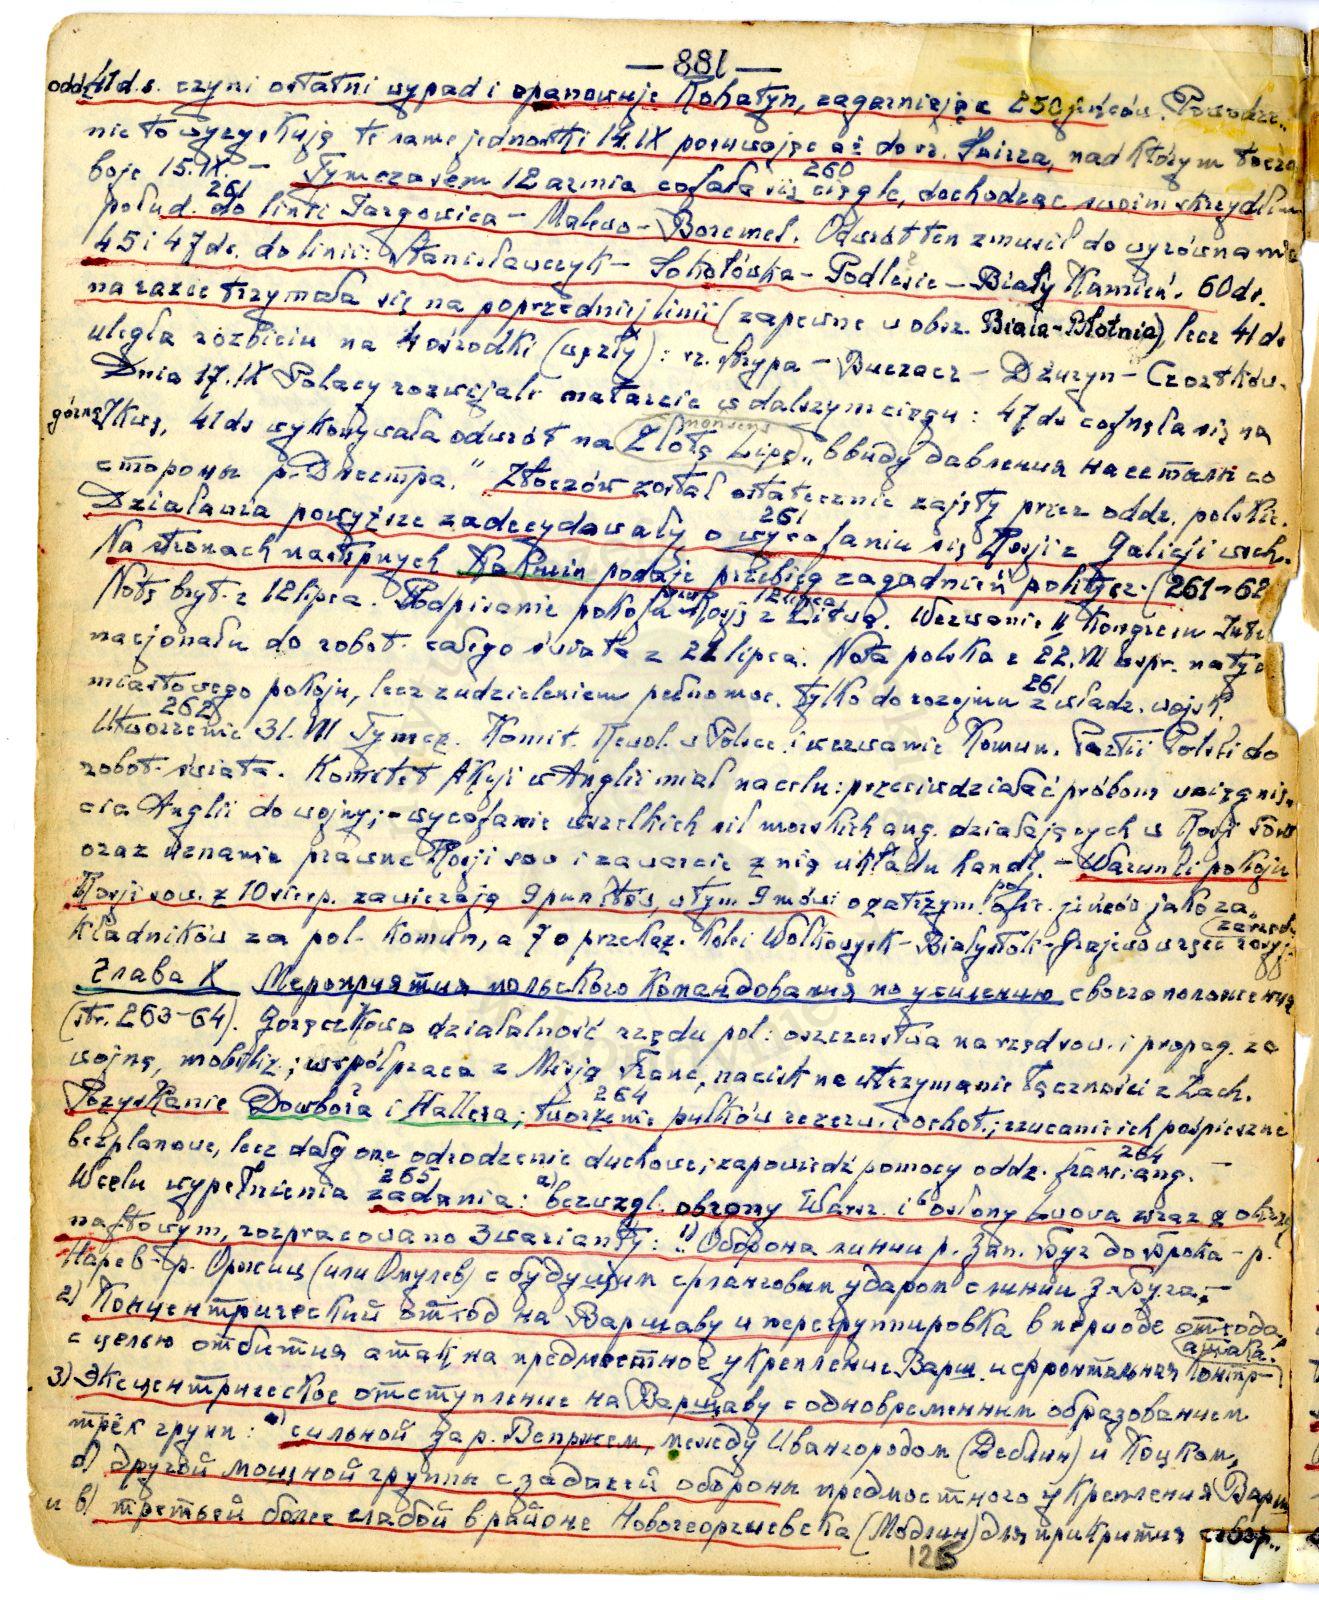 — 881 —
odd. 41 d.s. czyni ostatni wypad i opanowuje Rohatyn, zagarniając 250 jeńców. Powodze-
nie to wyzyskują te same jednostki 14.IX posuwając aż do rz. Świrza, nad którym toczą
boje 15.IX. – Tymczasem 12 armia cofała się ciągle, dochodząc swoim skrzydłem
260
261
połud. do linii Targowica – Malewo – Boremel. Odwrót ten zmusił do wyrównania
45 i 47 ds. do linii: Stanisławczyk – Sokołówka – Podlesie – Biały Kamień. 60 ds.
na razie trzymała się na poprzedniej linii (zapewne w obsz. Biała-Płotnia), lecz 41 ds
uległa rozbiciu na 4 ośrodki (węzły): rz. Strypa – Buczacz – Dżuryn – Czortków.
Dnia 17.IX Polacy rozwijali natarcie w dalszym ciągu: 47 ds cofnęła się na
górną Ikwę, 41 ds wykonywała odwrót na Złotą Lipę „ввиду давления на ее тыл со
nonsens
стороны р. Днестра." Złoczów został ostatecznie zajęty przez oddz. polskie.
Działania powyższe zadecydowały o wycofaniu się Rosji z Galicji wsch.
261
Na stronach następnych Kakurin podaje przebieg zagadnień politycz. (261–62
Notę bryt. z 12 lipca. Podpisanie pokoju Rosji z Litwą. Wezwanie II Kongresu Inter
12 lipca
nacjonału do robot. całego świata z 22 lipca. Nota polska z 22.VII w spr. natych
miastowego pokoju, lecz z udzieleniem pełnomoc. tylko do rozejmu z władz. wojsk.
261
262
Utworzenie 31.VII Tymcz. Komit. Rewol. w Polsce i wezwanie Komun. Partii Polski do
robot. świata. Komitet Akcji w Anglii miał na celu: przeciwdziałać próbom wciągnię-
cia Anglii do wojny; – wycofanie wszelkich sił morskich ang. działających w Rosji sow
oraz uznanie prawne Rosji sow i zawarcie z nią układu handl. – Warunki pokoju
Rosji sow. z 10 sierp. zawierają 9 punktów, w tym 9 mówi o zatrzym. ofic. jeńców jako za-
pol.
kładników za pol. komun., a 7 o przekaz. kolei Wołkowysk – Białystok – Grajewo w ręce rosyj.
zarządu
Глава X Мероприятия польского командования по усилению своего положения
(str. 263–64). Gorączkowa działalność rządu pol: oszczerstwa na rząd sow. i propag. za
wojną, mobiliz.; współpraca z Misją Franc., nacisk na utrzymanie łączności z Zach.
Pozyskanie Dowbora i Hallera; tworzenie pułków rezerw. i ochot.; rzucanie ich pospieszne
?
264
bezplanowe, lecz dało one odrodzenie duchowe; zapowiedź pomocy oddz. franc i ang. –
264
W celu wypełnienia zadania: a) bezwzgl. obrony Warsz. i b osłony Lwowa wraz z obszar.
265
naftowym, rozpracowano 3 warianty: 1) „Оборона линии р. Зап. Буг до Брока – р.
Нарев – р. Оржиц (или Омулев) с будущим фланговым ударом с линии З. Буга; –
2) Концентрический отход на Варшаву и перегруппировка в периоде отхода,
с целью отбития атак на предмостное укрепление Варш. и фронтальная контр-
атака.
3) Эксцентрическое отступление на Варшаву с одновременным образованием
трёх групп: а) сильной за р. Вепржем, между Ивангородом (Деблин) и Коцком,
б) другой мощной группы с задачей обороны предмостного укрепления Варш
и в) третьей более слабой в районе Новогеоргиевска (Модлин) для прикрытия север..
125